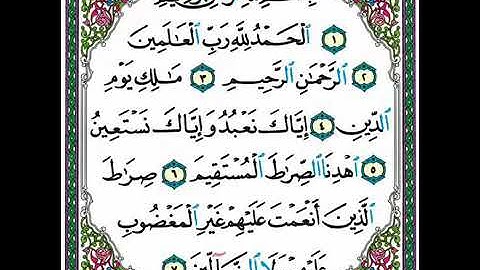 ٱلۡحَمۡدُ لِلَّهِ رَبِّ ٱلۡعَـٰلَمِينَ ١
٢ ٱلرَّحۡمَـٰنِ ٱلرَّحِيمِ ٣ مَـٰلِكِ يَوۡمِ
ٱلدِّينِ ٤ إِيَّاكَ نَعۡبُدُ وَإِيَّاكَ نَسۡتَعِينُ
٥ ٱهۡدِنَا ٱلصِّرَٰطَ ٱلۡمُسۡتَقِيمَ ٦ صِرَٰطَ
ٱلَّذِينَ أَنۡعَمۡتَ عَلَيۡهِمۡ غَيۡرِ ٱلۡمَغۡضُوبِ
عَلَيۡهِمۡ وَلَا ٱلضَّآلِّينَ ٧